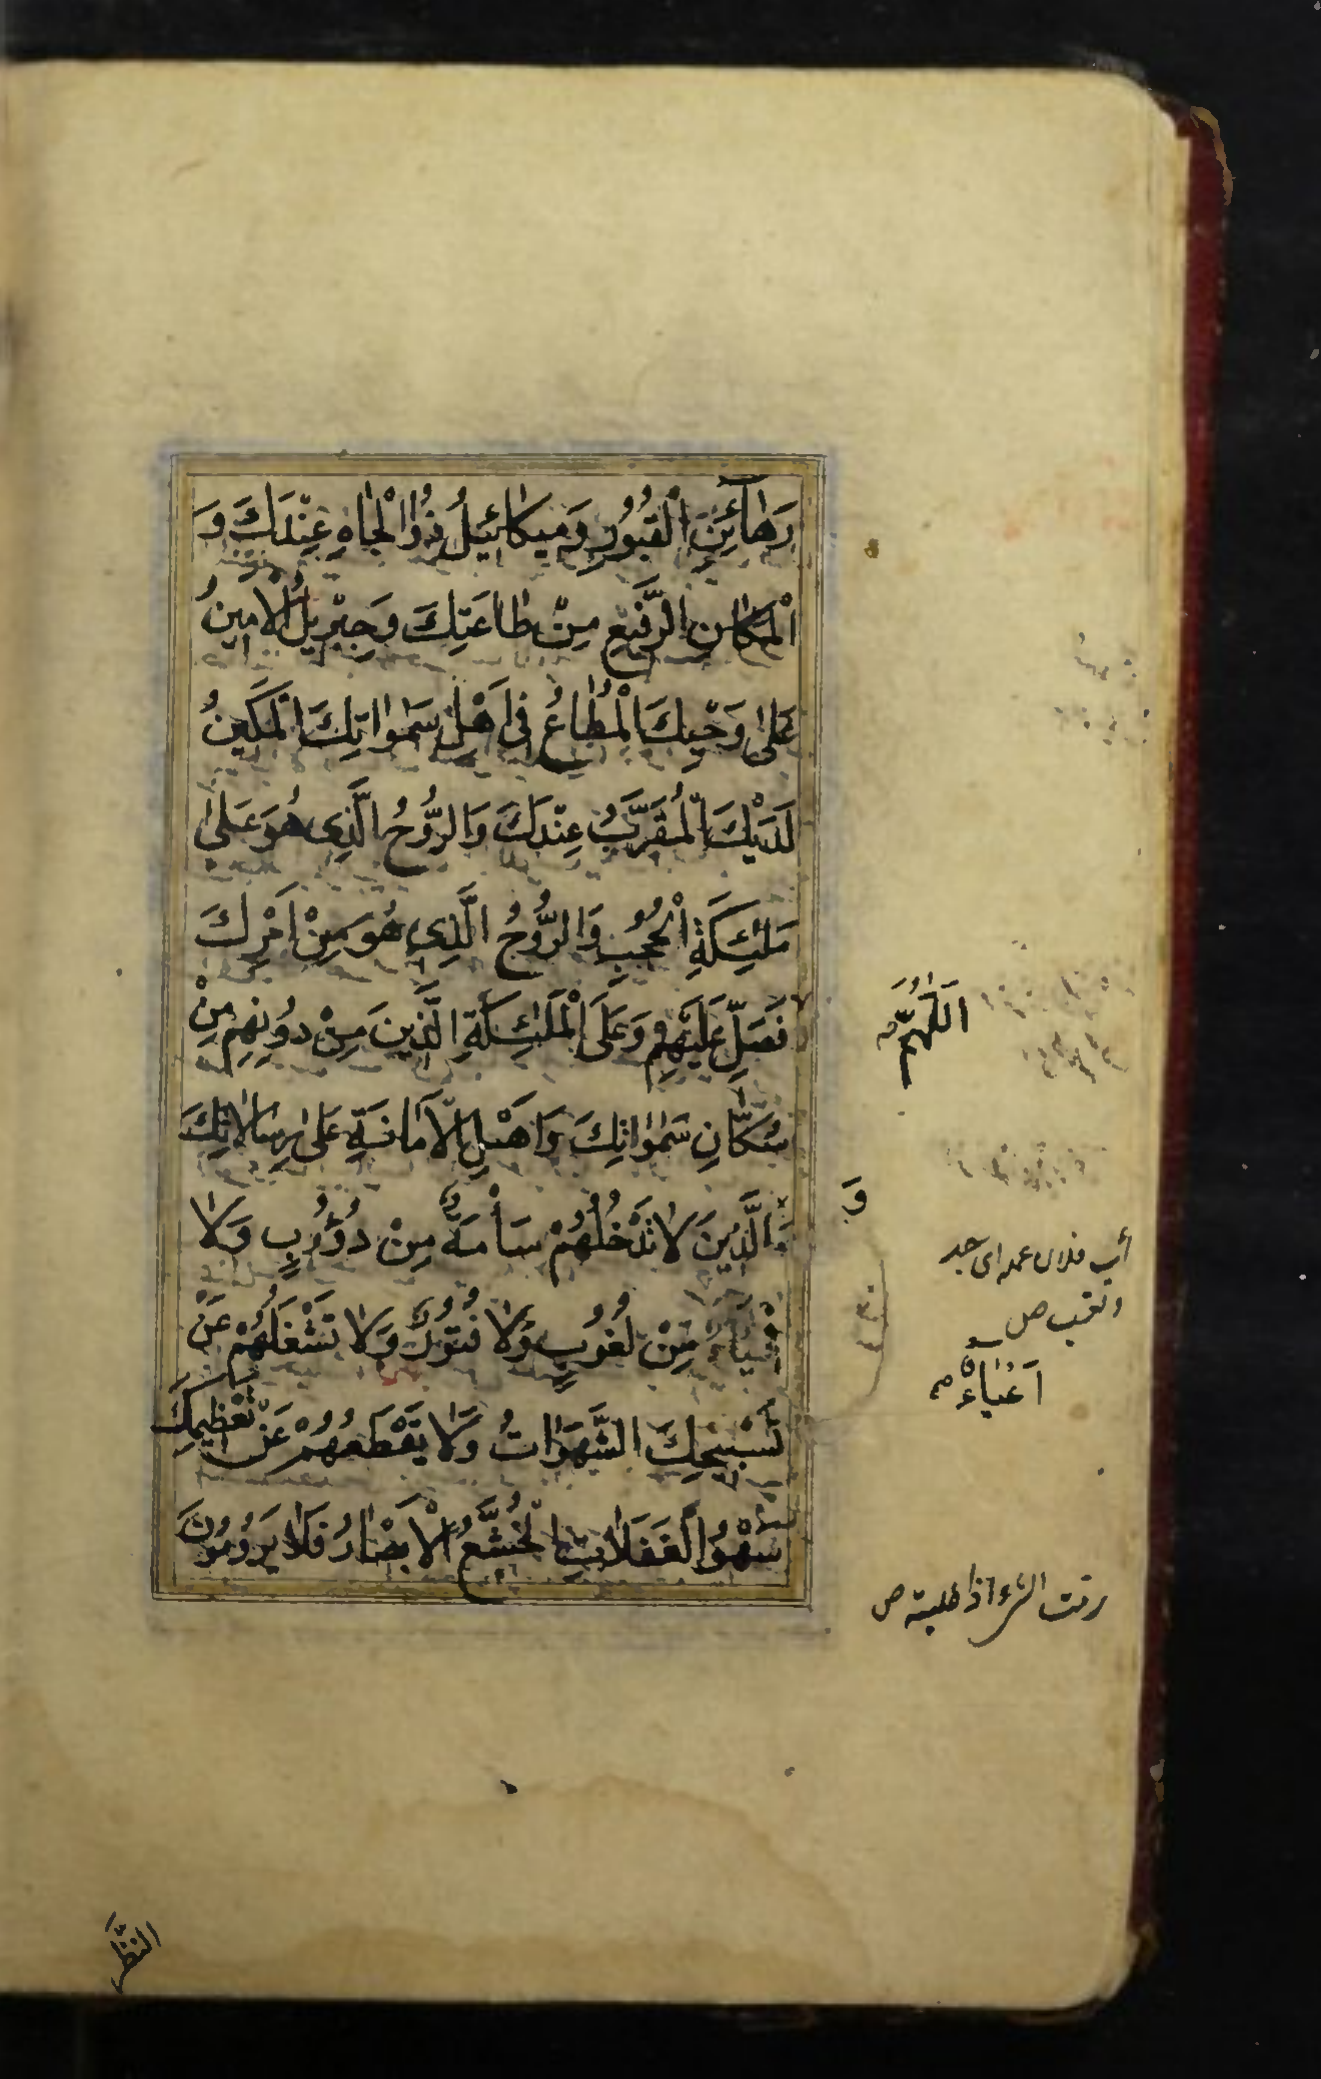 رَهَآئِنِ الْقُبُورِ وَمِيكَائِيلُ ذُوالْجَاهِ عِنْدَكَ وَ
الْمَكَانِ الرَّفِيعِ مِنْ طَاعَتِكَ وَجِبْرِيلُ الْاَمِينُ
عَلىٰ وَحْيِكَ الْمُطَاعُ فِى اَهْلِ سَمٰوَاتِكَ الْمَكِينُ
لَدَيْكَ الْمُقَرَّبُ عِنْدَكَ وَالرُّوحُ الَّذِى هُوَ عَلىٰ
مَلٰئِكَةِ الْحُجُبِ وَالرُّوحُ الَّذِى هُوَ مِنْ اَمْرِكَ
فَصَلِّ عَلَيْهِمْ وَعَلَى الْمَلٰئِكَةِ الَّذِينَ مِنْ دُونِهِمْ مِنْ
سُكَّانِ سَمٰوَاتِكَ وَاَهْلِ الْاَمَانَةِ عَلىٰ رِسَالَاتِكَ
وَالَّذِينَ لَا تَدْخُلُهُمْ سَأْمَةٌ مِنْ دُؤُبٍ وَلَا
مِنْ لُغُوبٍ وَلَا فُتُورٌ وَلَا تَشْغَلُهُمْ عَنْ
تَسْبِيحِكَ الشَّهَوَاتُ وَلَا يَقْطَعُهُمْ عَنْ تَعْظِيمِكَ
سَهْوُ الْغَفَلَاتِ الْخُشَّعُ الْاَبْصَارُ فَلَا يَرُومُونَ
اللّٰهُمَّ
وَ
أب فلان عمله اى جد
وتعب ص
اَعْيَاءٌ
رمت الشئ اذا طلبته ص
النَّظَرَ